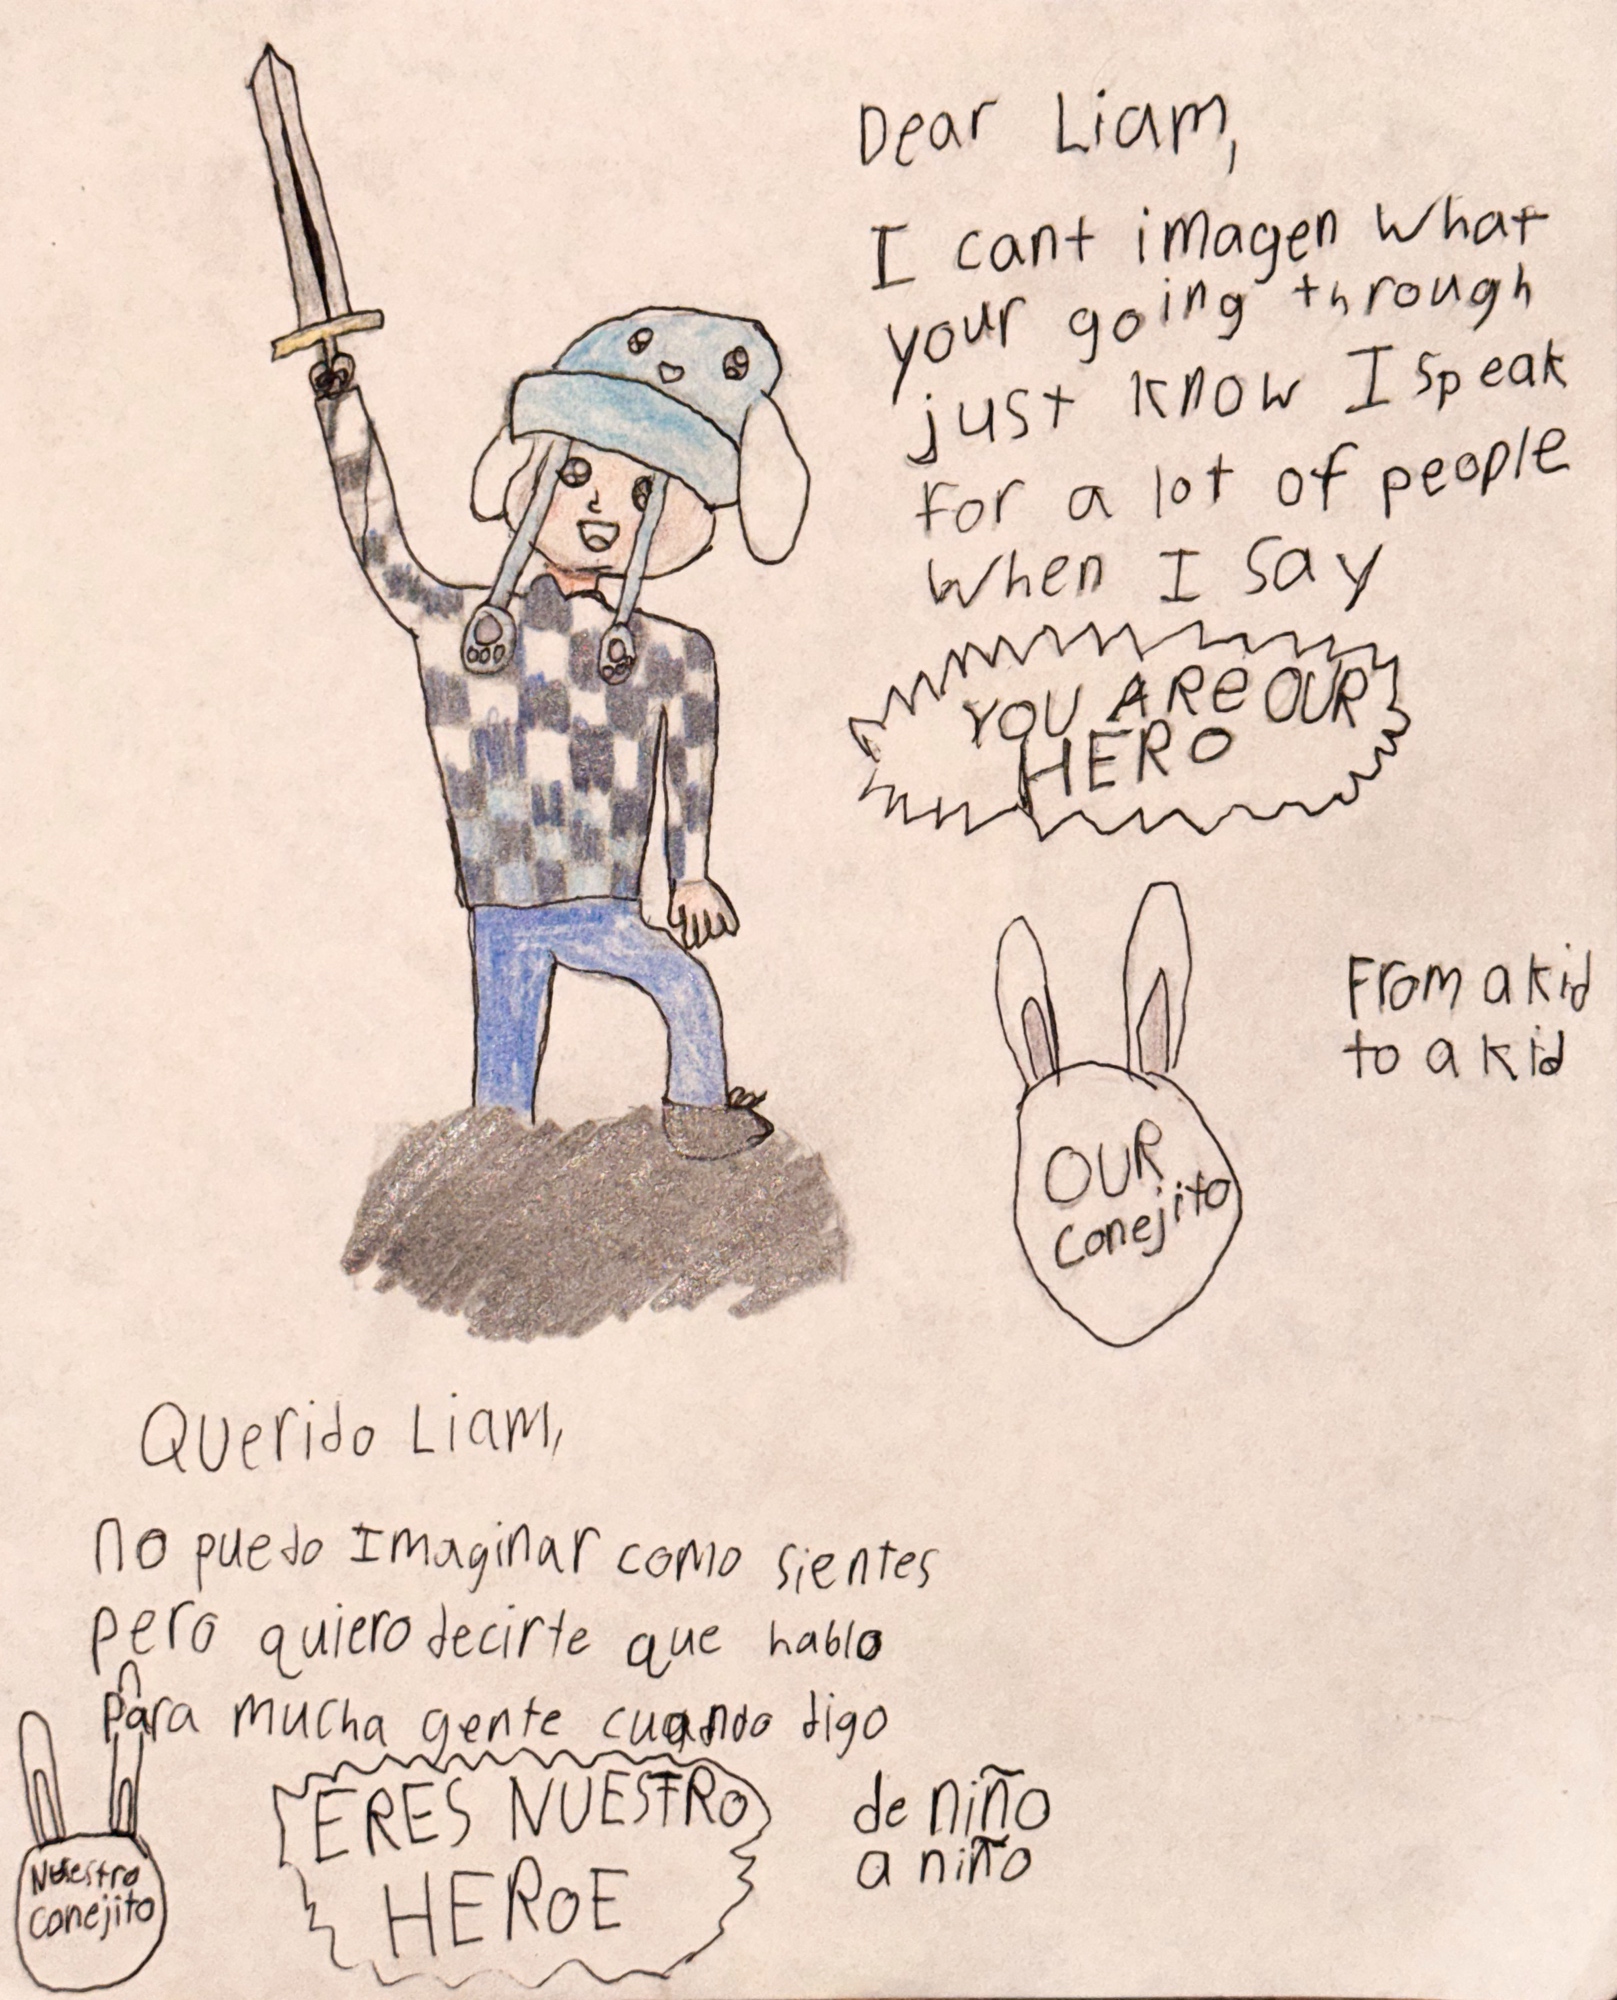 Dear Liam,
I cant imagen what
your going through
just know I speak
for a lot of people
when I say
YOU ARE OUR
HERO
From a kid
to a kid
OUR
Conejito
Querido Liam,
no puedo Imaginar como sientes
pero quiero decirte que hablo
para mucha gente cuando digo
ERES NUESTRO
HEROE
de niño
a niño
Nuestro
Conejito